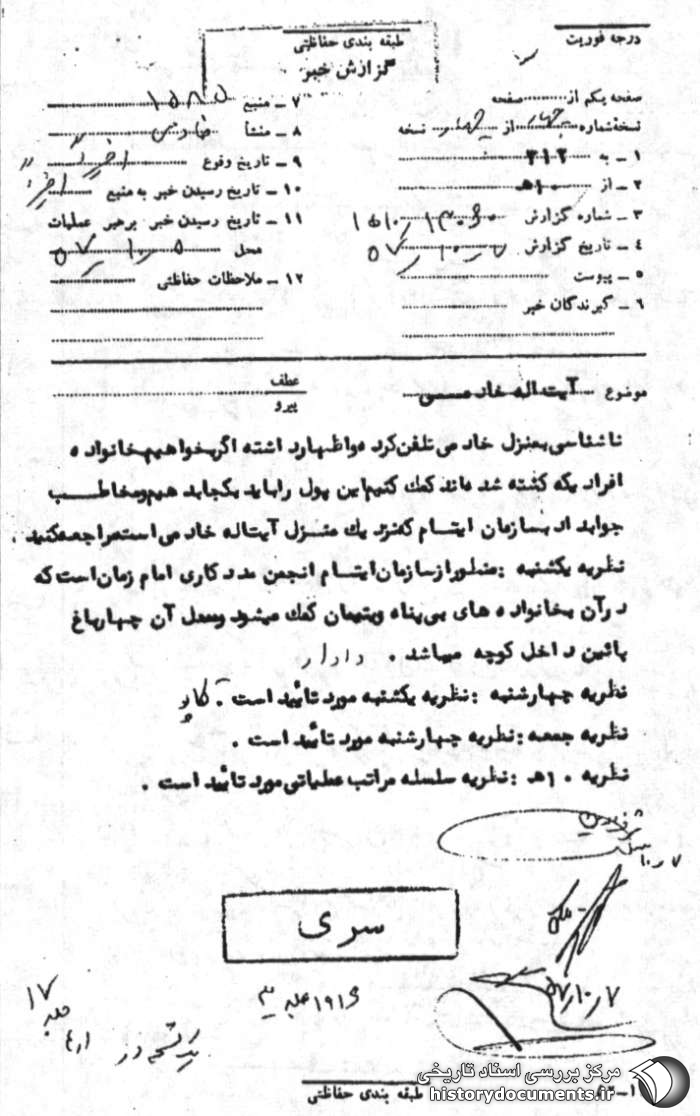 درجه فوریت
طبقه بندی حفاظتی
گزارش خبر
صفحه یکم از صفحه
نسخه شماره چهار از چهار نسخه
۱ ـ به ۳۱۲
۲ ـ از ۱۰ هـ
۳ ـ شماره گزارش
۴ ـ تاریخ گزارش
۵ ـ پیوست
۶ ـ گیرندگان خبر
۷ ـ منبع ۱۵۸۸۵
۸ ـ منشأ خادمی
۹ ـ تاریخ وقوع اخیراً
۱۰ ـ تاریخ رسیدن خبر به منبع اخیراً
۱۱ ـ تاریخ رسیدن خبر برهبر عملیات
محل ۵ر۱۰ر۵۷
۱۲ ـ ملاحظات حفاظتی
موضوع آیت اله خادمی
عطف
پیرو
ناشناسی بمنزل خادمی تلفن کرد و اظهار داشته اگر بخواهیم خانواده
افرادیکه کشته شده اند کمک کنیم این پول را باید بکجا بدهیم و مخاطب
جواب داد بسازمان ایتسام که نزدیک منزل آیت اله خادمی است مراجعه کنید .
نظریه یکشنبه : منظور از سازمان ایتسام انجمن مددکاری امام زمان است که
در آن بخانواده های بی پناه و یتیمان کمک میشود و محل آن چهارباغ
پائین داخل کوچه میباشد . دادار
نظریه چهارشنبه : نظریه یکشنبه مورد تائید است .
نظریه جمعه : نظریه چهارشنبه مورد تائید است .
نظریه ۱۰ هـ : نظریه سلسله مراتب عملیاتی مورد تائید است .
سری
۵۷/۱۰/۷
۱۷
طبقه بندی حفاظتی
مرکز بررسی اسناد تاریخی
historydocuments.ir